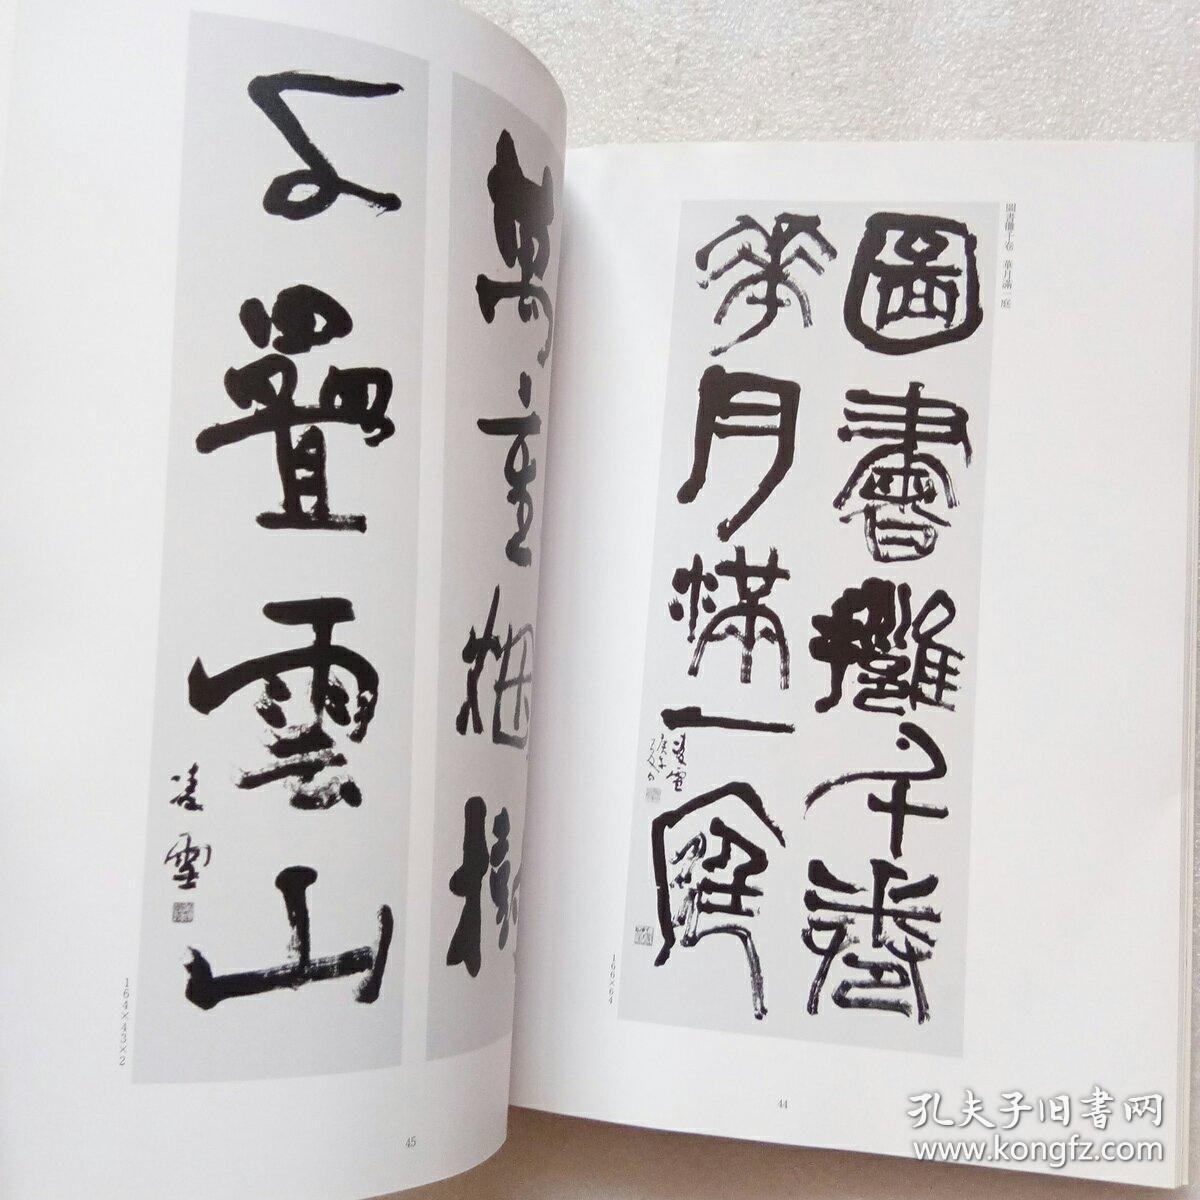 圖書儺千卷　華月滿一庭
圖書儺千卷
華月滿一庭
凌雲
166×64
44
萬重烟樹
疊雲山
凌雲
164×43×2
45
孔夫子旧書网
www.kongfz.com